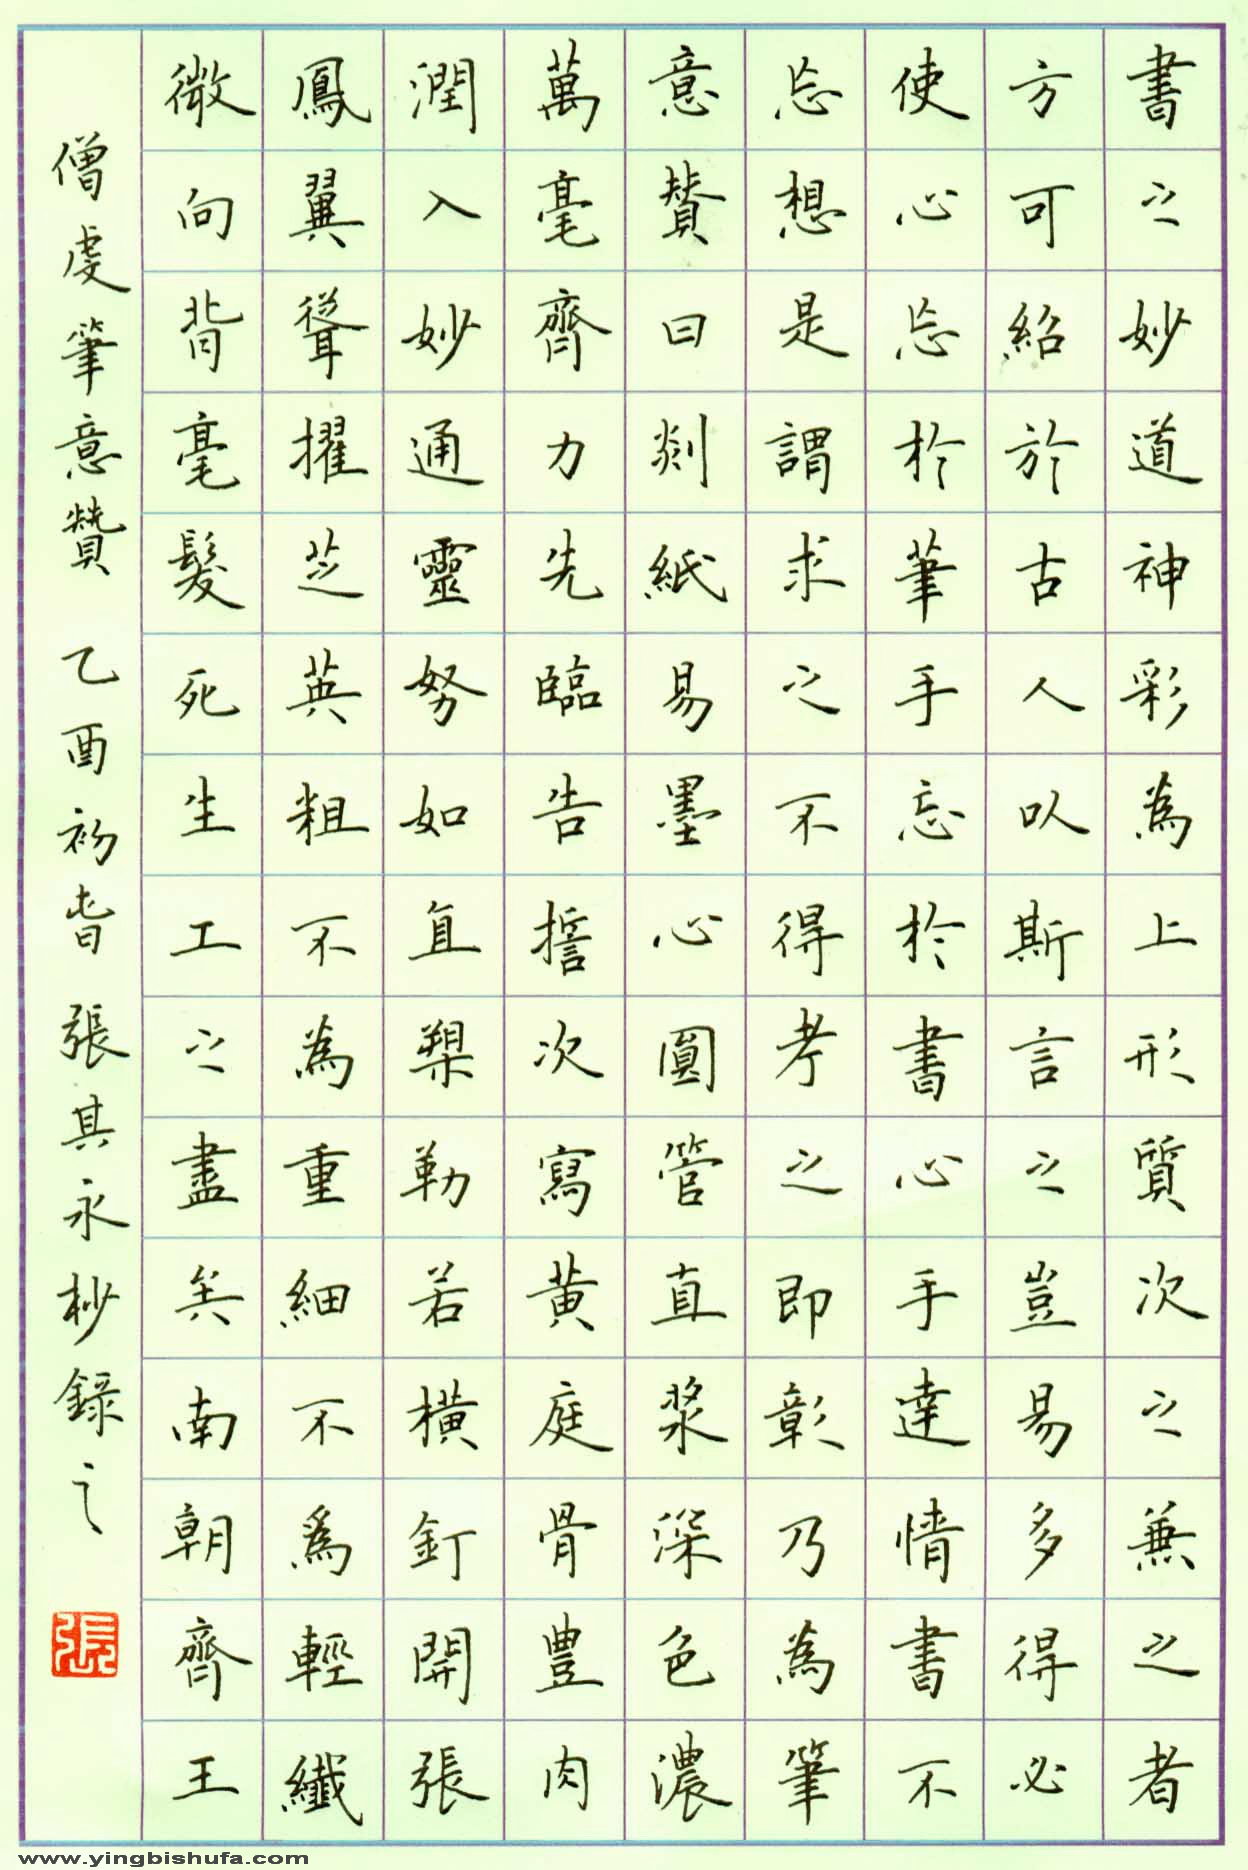 書之妙道神彩為上形質次之兼之者
方可紹於古人以斯言之豈易多得必
使心忘於筆手忘於書心手達情書不
忘想是謂求之不得考之即彰乃為筆
意賛曰剡紙易墨心圓管直漿深色濃
萬毫齊力先臨告誓次寫黄庭骨豊肉
潤入妙通靈努如直槊勒若横釘開張
鳳翼聳擢芝英粗不為重細不爲輕纖
微向背毫髮死生工之盡矣南朝齊王
僧虔筆意贊 乙酉初春 張其永抄錄之
張
www.yingbishufa.com